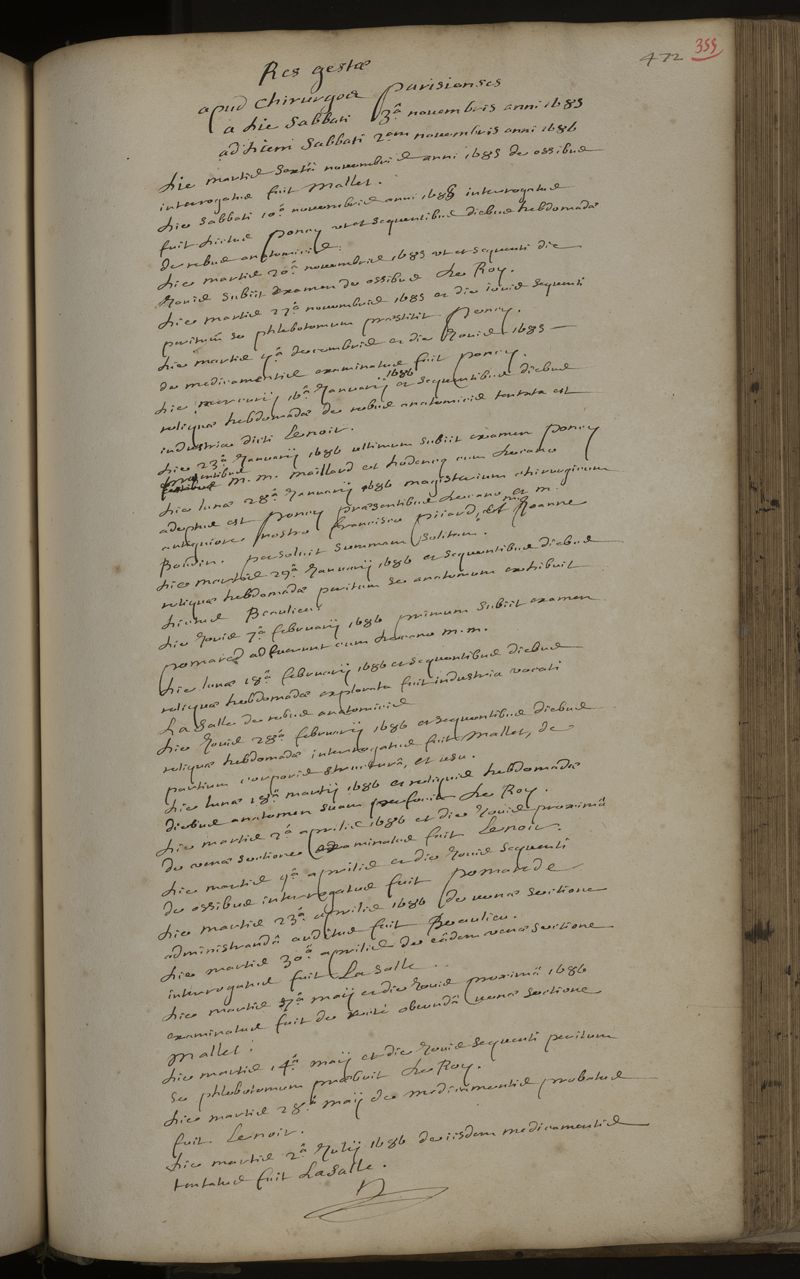 472 355
Res gestæ
apud Chirurgos Parisienses
a die Sabbati 3ª novembris anni 1685
ad diem Sabbati 2am novembris anni 1686
die martis sexta novembris anni 1685 de ossibus
interrogatus fuit Mallet.
die Sabbati 10ª novembris anni 1685 interrogatus
fuit dictus Poncy ut et sequentibus diebus hebdomadæ
de rebus anatomicis.
die martis 20ª novembris 1685 ut et sequenti die
Jovis subiit examen de ossibus Le Roy.
die martis 27ª novembris 1685 et die iovis sequenti
peritum se phlebotomum præstitit Poncy.
die martis 4ª decembris et die Jovis 1685 —
de medicamentis examinatus fuit Poncy.
die mercurij 16ª Januarij 1686 et sequentibus diebus
reliquæ hebdomadæ de rebus anatomicis tentata est
industria dicti Lenoir.
die 23ª Januarij 1686 ultimum subiit examen Poncy
præsentibus m. m. Maillard et hodencq cum decano
die lunæ 28ª Januarij 1686 magisterium chirurgicum
adeptus est Poncy præsentibus decano et m.
antiquiore nostro francisco Picard, et Joanne
Boudin. persolvit summam solitam.
die martis 29ª Januarij 1686 et sequentibus diebus
reliquæ hebdomadæ peritum se anatomum exhibuit
dictus Beaulieu.
die Jovis 7ª februarij 1686 primum subiit examen
pomard adfuerunt cum decano m. m.
die lunæ 18ª februarij 1686 et sequentibus diebus
reliquæ hebdomadæ explorata fuit industria vocati
La Salle de rebus anatomicis
die Jovis 28ª februarij 1686 et sequentibus diebus
reliquæ hebdomadæ interrogatus fuit Mallet, de
partium corporis structurâ, et usu.
die lunæ 18ª martij 1686 et reliquis hebdomadæ
diebus anatomen suam perfecit Le Roy.
die martis 2ª aprilis 1686 et die Jovis proximâ
de venæ sectione examinatus fuit Lenoir.
die martis 9ª aprilis et die Jovis sequenti
de ossibus interrogatus fuit pomarde
die martis 23ª aprilis 1686 de venæ sectione
administrandâ auditus fuit Beaulieu.
die martis 30ª aprilis de eâdem venæ sectione
interrogatus fuit La Salle.
die martis 7ª maij et die Jovis proximâ 1686
examinatus fuit de ritè obeundâ venæ sectione
Mallet.
die martis 14ª maij et die Jovis sequenti peritum
se phlebotomum præbuit Le Roy.
die martis 28ª maij de medicamentis probatus
fuit Lenoir.
die martis 2ª Julij 1686 de iisdem medicamentis
tentatus fuit La Salle.